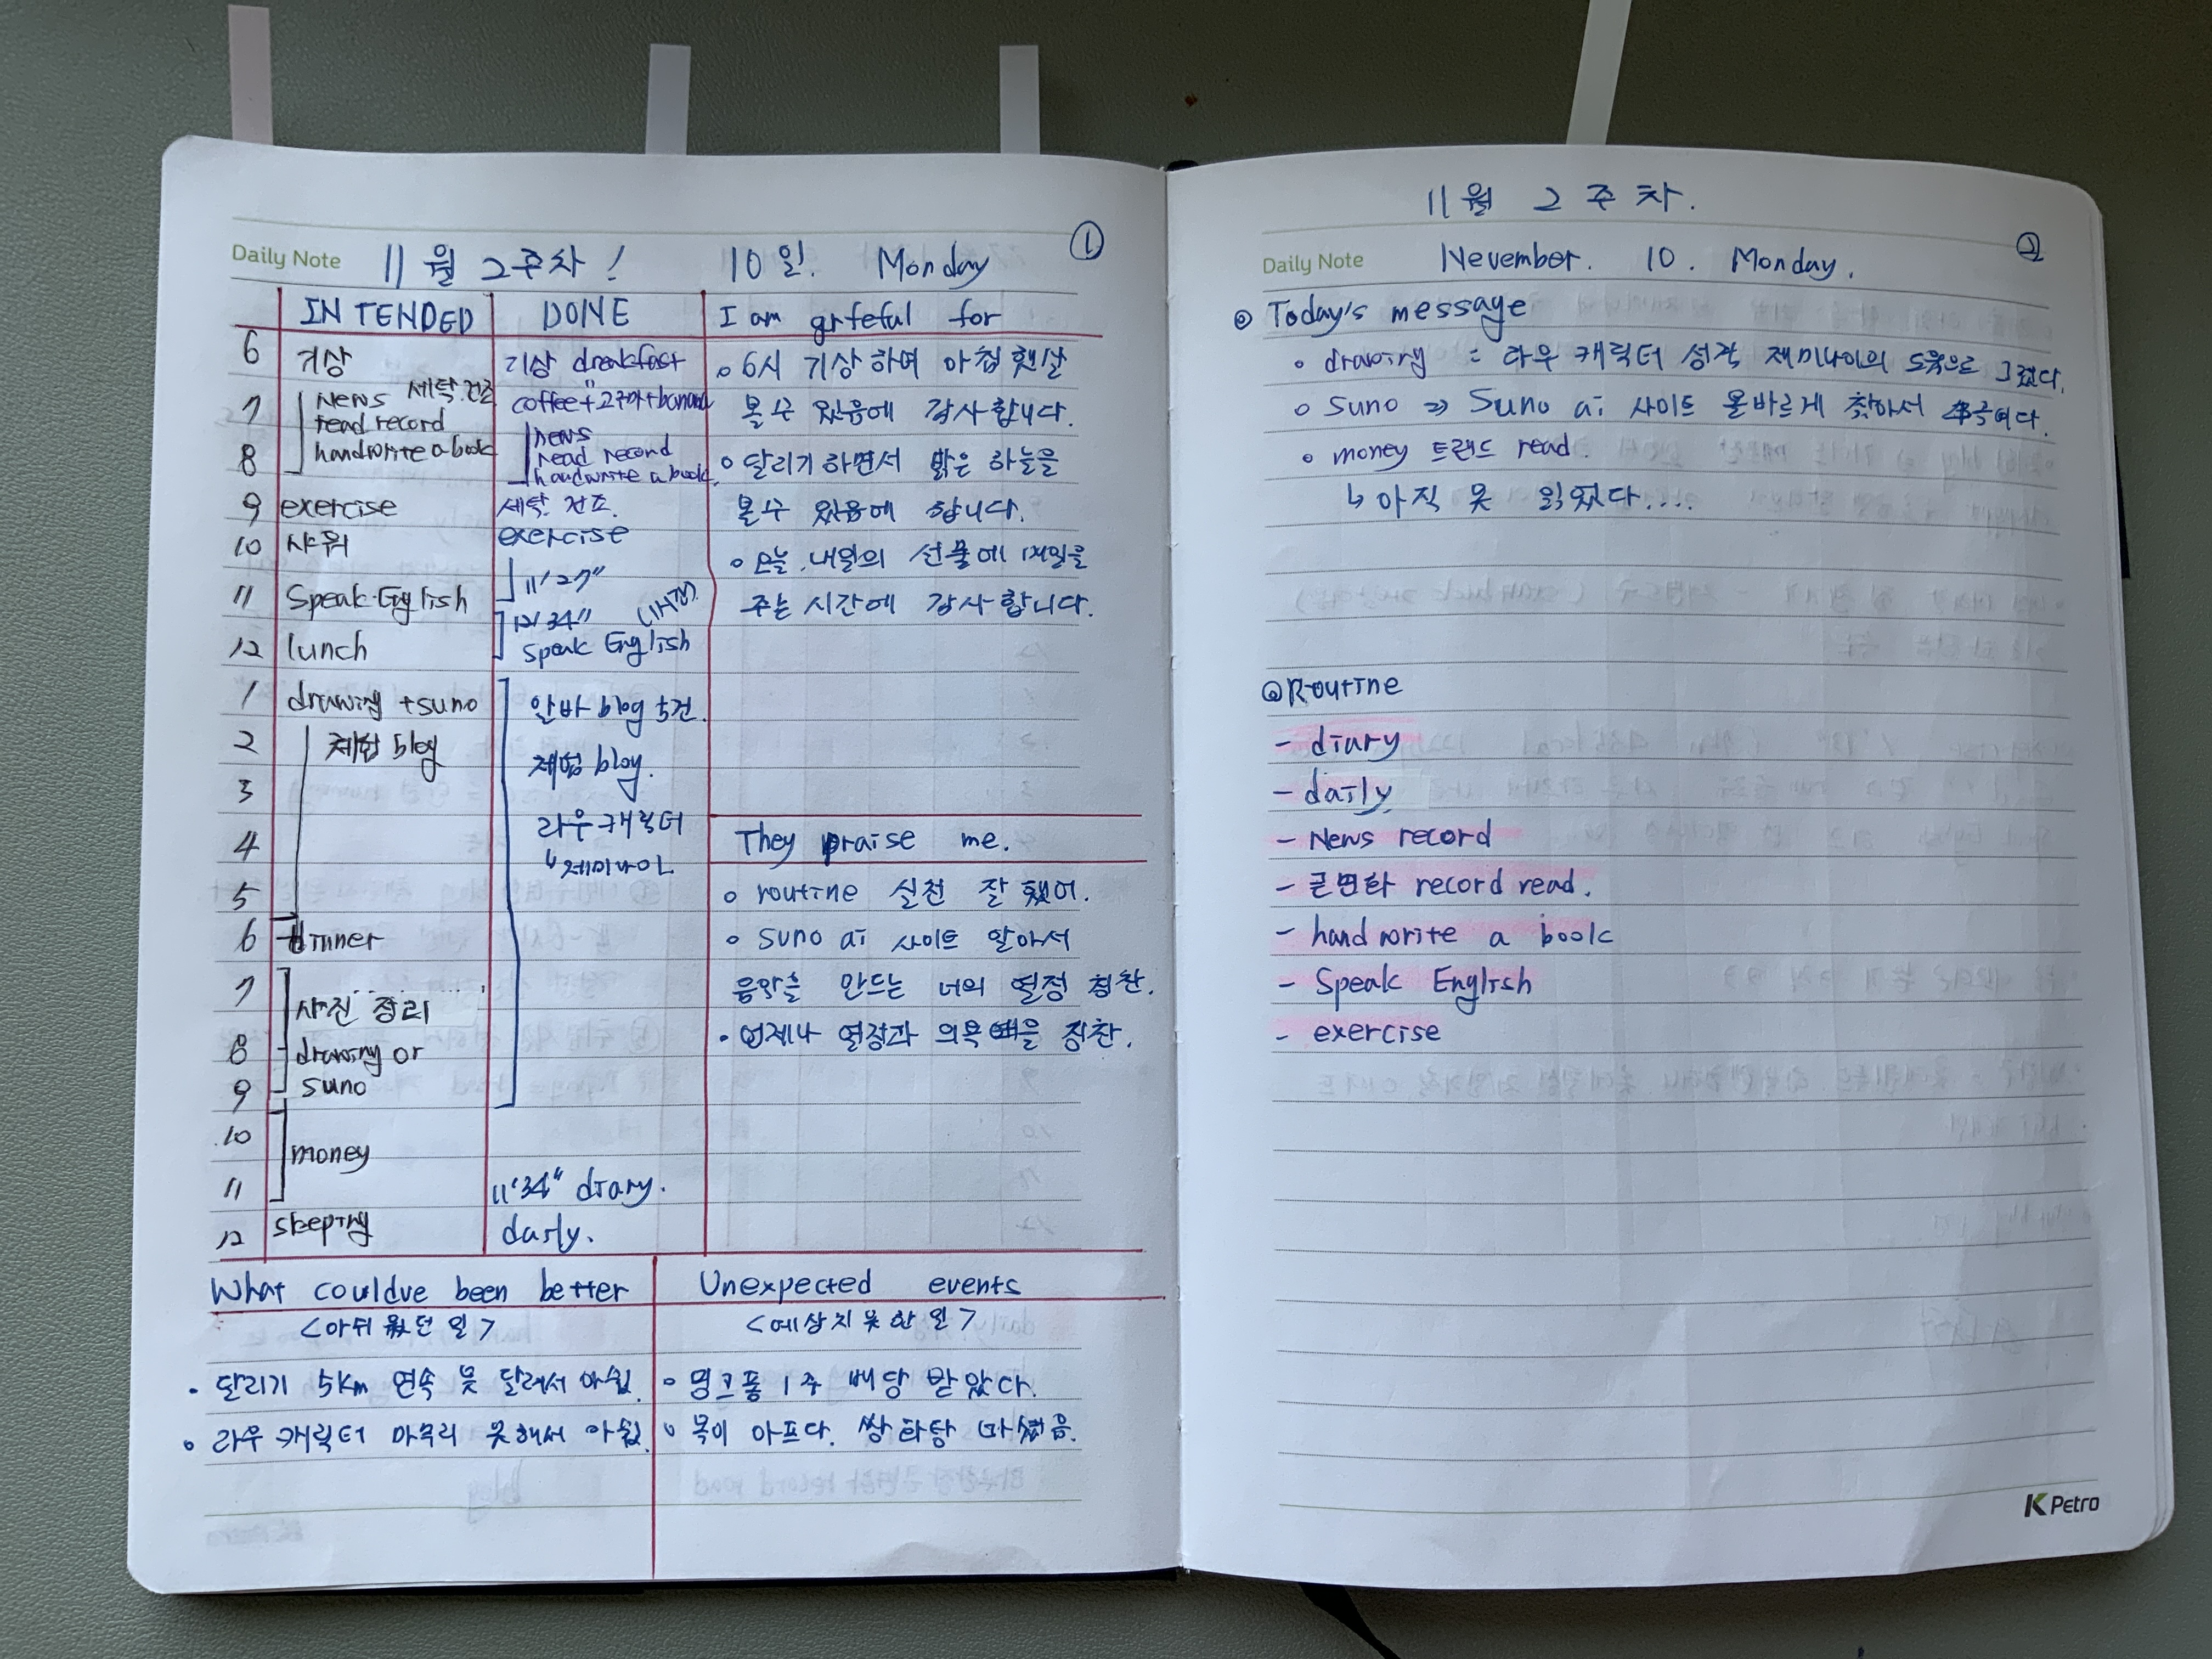 Daily Note 11월 2주차! 10일. Monday ①
INTENDED DONE I am grteful for
6 기상 기상 dreakfast
세탁.건조 coffee+고구마+banana
7 News
read record
8 handwrite a book
news
read record
handwrite a book.
9 exercise 세탁 건조.
10 샤워 exercise
11'27"
11 Speak English 12'34"
12 lunch Speak English
1 drawing +suno 알바 blog 5건.
2 체험 blog 체험 blog.
3 라우 캐릭터
4 ↳ 제미나이
5
6 dinner
7 사진 정리
8 drawing or
9 suno
10 money
11 11'34" diary.
12 sleeping daily.
• 6시 기상하여 아침 햇살
볼수 있음에 감사합니다.
• 달리기 하면서 맑은 하늘을
볼수 있음에 합니다.
• 오늘, 내일의 선물에
주는 시간에 감사합니다.
They praise me.
• routine 실천 잘 했어.
• suno ai 사이트 알아서
음악을 만드는 너의 열정 칭찬.
• 언제나 열정과 의욕 칭찬.
What could've been better Unexpected events
<아쉬웠던 일> <예상치 못한 일>
• 달리기 5km 연속 못 달려서 아쉽. • 밍크퐁 1주 배당 받았다.
• 라우 캐릭터 마무리 못해서 아쉽. • 목이 아프다. 쌍화탕 마셨음.
11월 2주차.
Daily Note Nevember. 10. Monday. ②
◎ Today's message
• drawing = 라우 캐릭터 성격 재미나이의 도움으로 그렸다.
• suno ⇒ Suno ai 사이트 올바르게 찾아서
• money 트랜드 read.
↳ 아직 못 읽었다....
◎ Routine
- diary
- daily
- News record
- 큰변화 record read.
- hand write a book
- Speak English
- exercise
K Petro